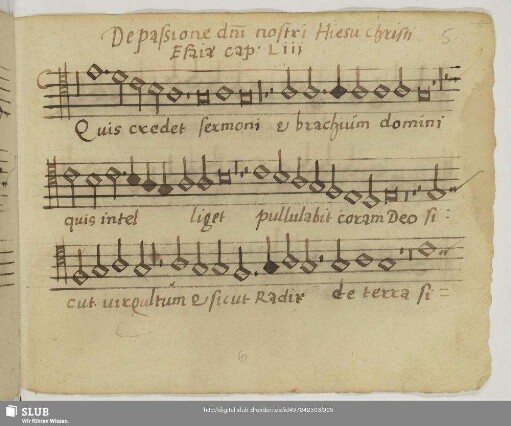 De passione dnī nostri Hiesu christi
Esaiæ cap: Liii
5.
Quis credet sermoni & brachium domini
quis intel liget pullulabit coram Deo si:
cut virgultum & sicut Radix de terra si=
6
SLUB
Wir führen Wissen.